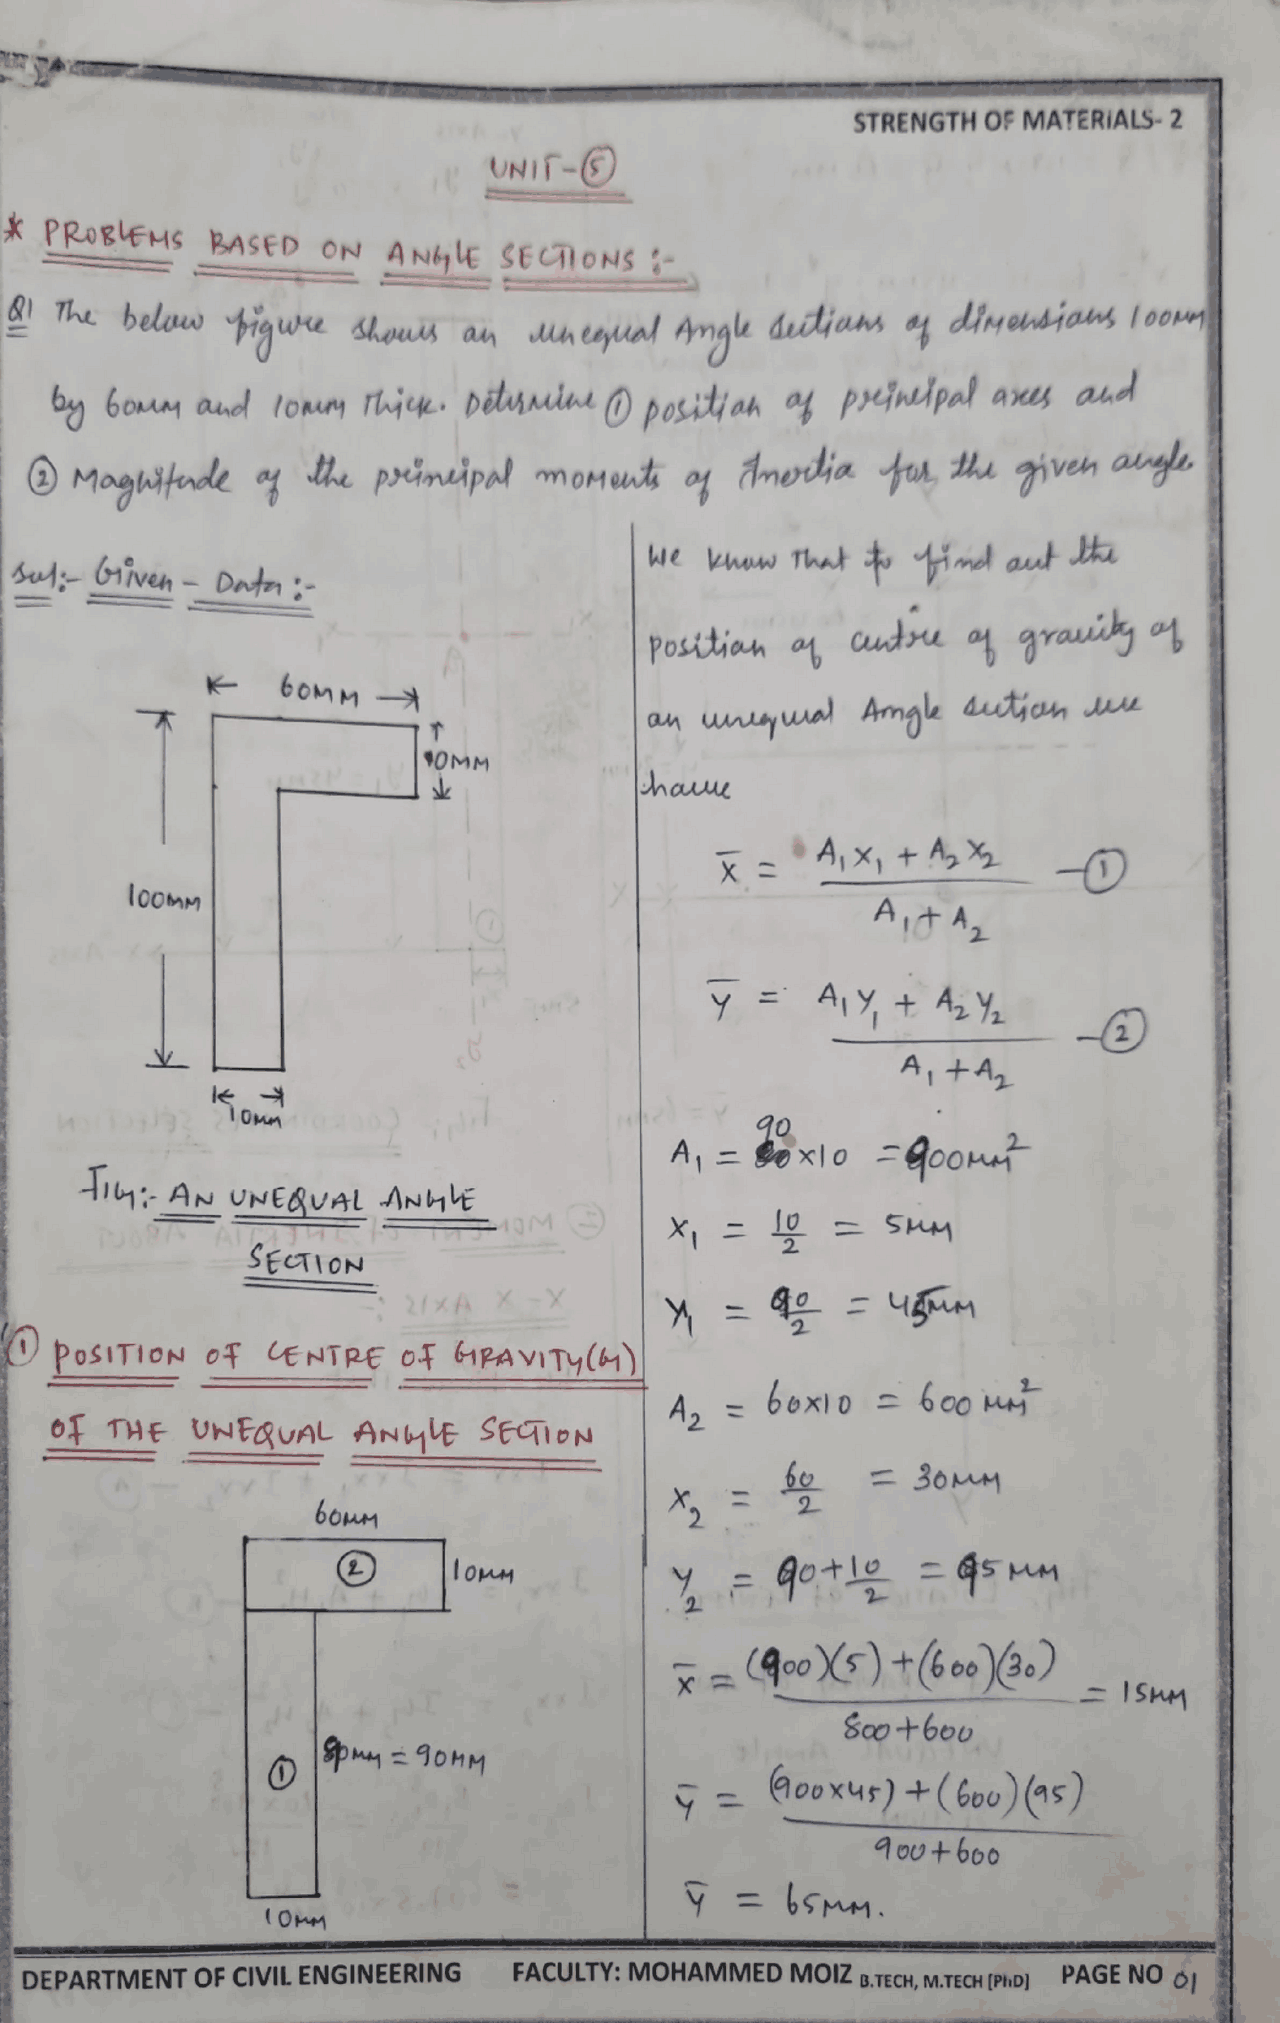 STRENGTH OF MATERIALS- 2
UNIT-⑤
* PROBLEMS BASED ON ANGLE SECTIONS :-
Q1 The below figure shows an unequal Angle sections of dimensions 100mm
by 60mm and 10mm Thick. Determine ① position of principal axes and
② Magnitude of the principal moments of Inertia for the given angle.
Sol:- Given - Data :-
60MM
10MM
100MM
10mm
Fig:- AN UNEQUAL ANGLE
SECTION
① POSITION OF CENTRE OF GRAVITY(G)
OF THE UNEQUAL ANGLE SECTION
60MM
②
10MM
①
80MM = 90MM
10MM
We know That to find out the
position of centre of gravity of
an unequal Angle section we
have
x̄ = A₁x₁ + A₂x₂ / A₁+A₂ -①
ȳ = A₁y₁ + A₂y₂ / A₁+A₂ -②
A₁ = 90x10 = 900mm²
x₁ = 10/2 = 5MM
y₁ = 90/2 = 45MM
A₂ = 60x10 = 600mm²
x₂ = 60/2 = 30MM
y₂ = 90+10/2 = 95MM
x̄ = (900)(5)+(600)(30) / 800+600 = 15MM
ȳ = (900x45)+(600)(95) / 900+600
ȳ = 65MM.
DEPARTMENT OF CIVIL ENGINEERING FACULTY: MOHAMMED MOIZ B.TECH, M.TECH [PhD] PAGE NO 01